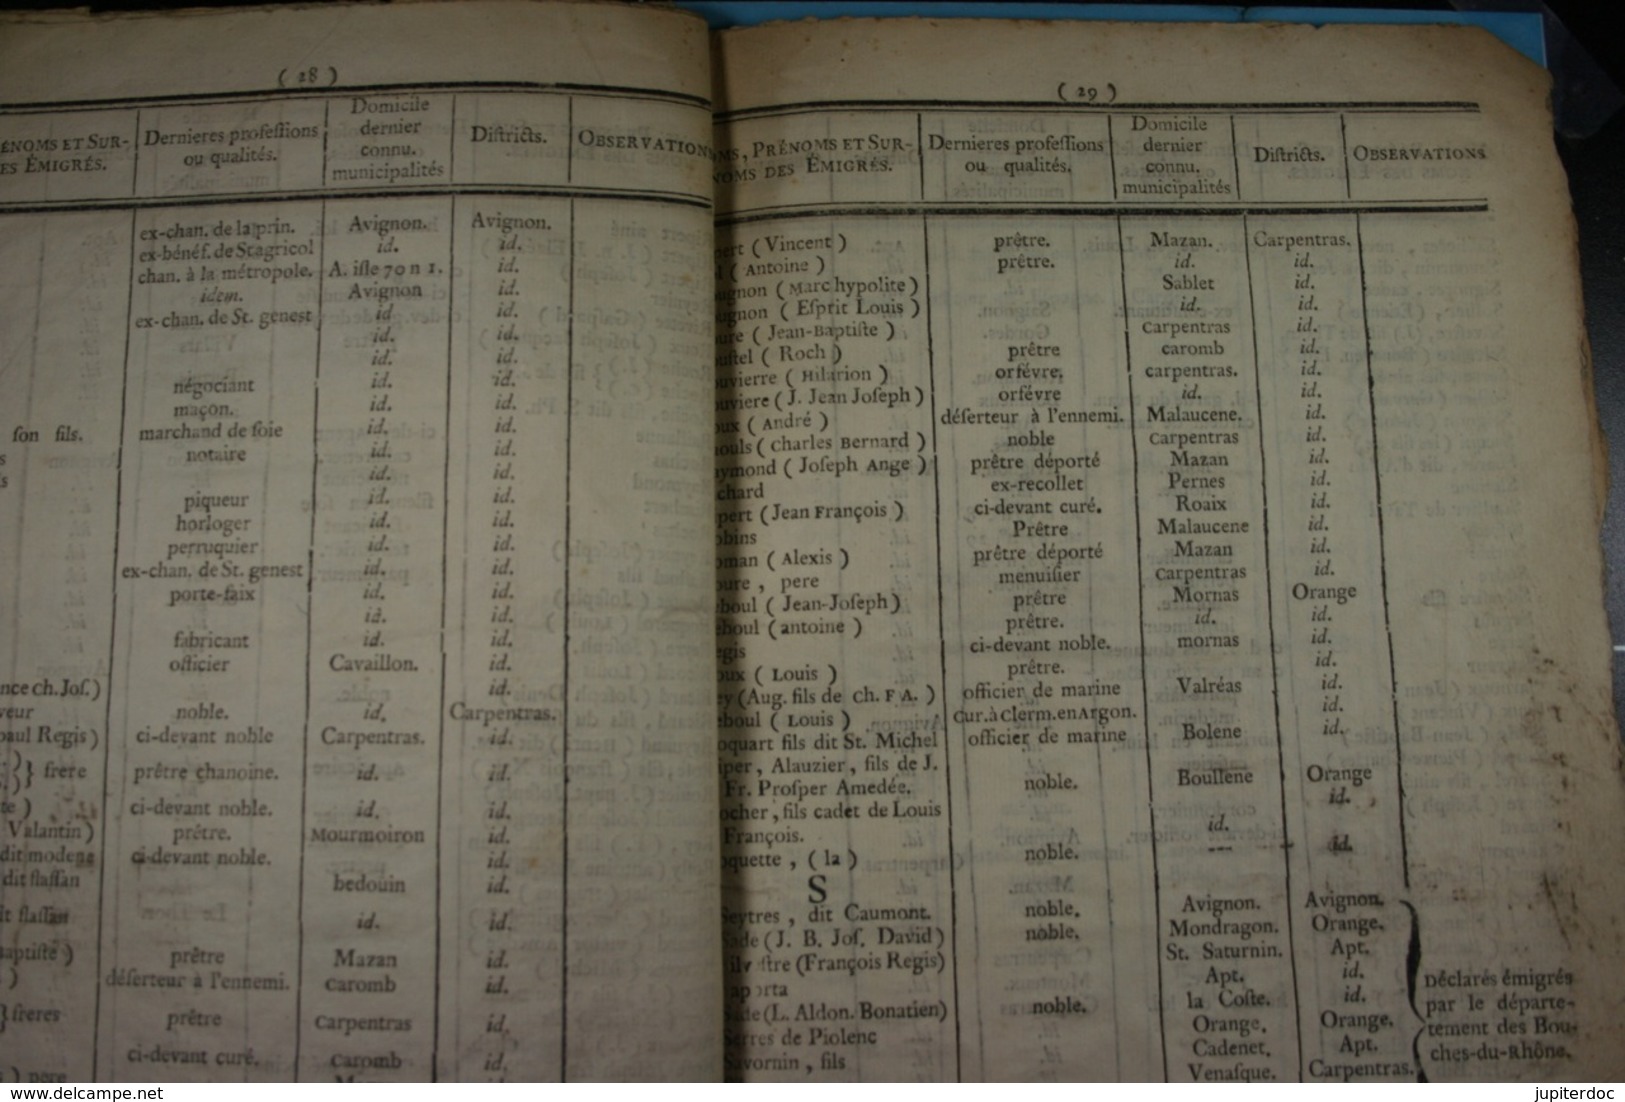 ( 28 )
RÉNOMS ET SUR- Dernieres profeſſions Domicile Diſtricts. OBSERVATIONS
ES ÉMIGRÉS. ou qualités. dernier
connu.
municipalités
ex-chan. de laprin. Avignon. Avignon.
ex-bénéf. de Stagricol id. id.
chan. à la métropole. A. iſle 70 n 1. id.
idem. Avignon id.
ex-chan. de St. genest id id.
id. id.
id. id.
négociant id. id.
maçon. id. id.
ſon fils. marchand de ſoie id. id.
notaire id. id.
piqueur id. id.
horloger id. id.
perruquier id. id.
ex-chan. de St. genest id. id.
porte-faix id. id.
id. id.
fabricant id. id.
officier Cavaillon. id.
nce ch. Joſ.) id.
veur noble. id. Carpentras.
paul Regis ) ci-devant noble Carpentras. id.
} frere prêtre chanoine. id. id.
te ) ci-devant noble. id. id.
Valantin) prêtre. Mourmoiron id.
dit modena ci-devant noble. id.
dit flaſſan bedouin id.
it flaſſan id. id.
aptiſte ) prêtre Mazan id.
) déſerteur à l'ennemi. caromb id.
} freres prêtre carpentras id.
ci-devant curé. caromb id.
) pere
( 29 )
OMS, PRÉNOMS ET SUR- Dernieres profeſſions Domicile Diſtricts. OBSERVATIONS
NOMS DES ÉMIGRÉS. ou qualités. dernier
connu.
municipalités
pert ( Vincent ) prêtre. Mazan. Carpentras.
( Antoine ) prêtre. id. id.
ugnon ( Marc hypolite ) Sablet id.
ugnon ( Eſprit Louis ) id. id.
oure ( Jean-Baptiſte ) carpentras id.
ouſtel ( Roch ) prêtre caromb id.
ouvierre ( Hilarion ) orfévre. carpentras. id.
ouviere ( J. Jean Joſeph ) orfévre id. id.
oux ( André ) déſerteur à l'ennemi. Malaucene. id.
nouls ( charles Bernard ) noble carpentras id.
aymond ( Joſeph Ange ) prêtre déporté Mazan id.
chard ex-recollet Pernes id.
pert ( Jean François ) ci-devant curé. Roaix id.
obins Prêtre Malaucene id.
oman ( Alexis ) prêtre déporté Mazan id.
oure , pere menuiſier carpentras id.
eboul ( Jean-Joſeph ) prêtre Mornas Orange
eboul ( antoine ) prêtre. id. id.
egis ci-devant noble. mornas id.
oux ( Louis ) prêtre. id.
ey (Aug. fils de ch. F A. ) officier de marine Valréas id.
eboul ( Louis ) cur. à clerm. en Argon. id.
oquart fils dit St. Michel officier de marine Bolene id.
iper , Alauzier , fils de J.
Fr. Proſper Amedée. noble. Bouſſene Orange
ocher , fils cadet de Louis id.
François. id.
oquette , ( la ) noble. --- id.
S
Seytres , dit Caumont. noble. Avignon. Avignon.
Sade ( J. B. Joſ. David ) noble. Mondragon. Orange.
ſtre (François Regis) St. Saturnin. Apt.
aporta Apt. id.
Sade (L. Aldon. Bonatien) noble. la Coſte. id.
Serres de Piolenc Orange. Orange.
Savornin , fils Cadenet. Apt.
Venaſque. Carpentras.
Déclarés émigrés
par le départe-
tement des Bou-
ches-du-Rhône.
jupiterdoc